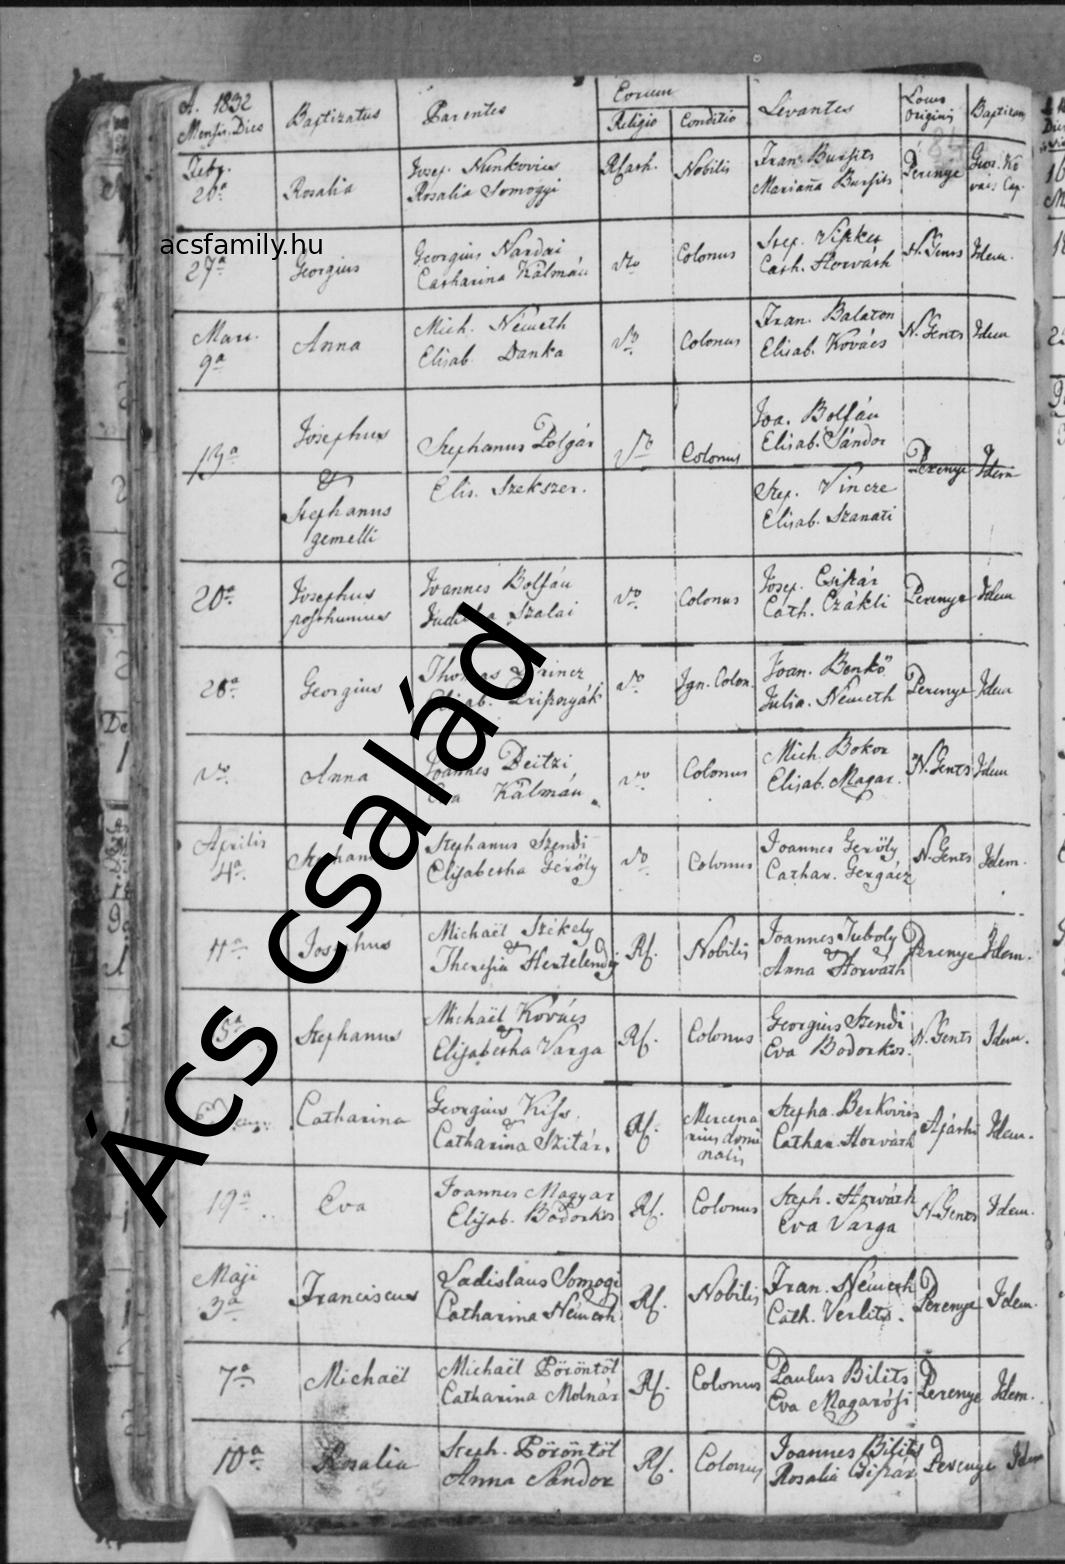 A. 1832
Mensis, Dies
Baptizatus
Parentes
Eorum
Religio
Conditio
Levantes
Locus
Originis
Baptizans
Febr.
26ª
Rosalia
Josep. Nunkovics
Rosalia Somogyi
RCath.
Nobilis
Fran. Bursits
Mariana Bursits
Perenye
acsfamily.hu
27ª
Georgius
Georgius Nardai
Catharina Kálmán
vto
Colonus
Step.
Cath. Horvath
N. Gencs
Idem.
Mart.
9ª
Anna
Mich. Németh
Elisab. Danka
Colonus
Fran. Balaton
Elisab. Kovács
N. Gents
Idem
13ª
Josephus
&
Stephanus
gemelli
Stephanus Polgár
Elis. Szekszer.
Colonus
Joa. Bolfán
Elisab. Sándor
Step. Vincze
Elisab. Szanati
Perenye
Idem
20ª
Josephus
posthumus
Joannes Bolfán
Szalai
Colonus
Josep. Csiszár
Cath. Czákli
Perenye
Idem
Georgius
Jgn. Colon.
Joan. Benkő
Julia. Németh
Perenye
Idem
Anna
Joannes Deitzi
Eva Kálmán
Colonus
Mich. Bokor
Elisab. Magar.
N. Gents
Idem
Aprilis
4ª
Stephanus
Stephanus Szendi
Elisabetha Geröly
Colonus
Joannes Geröly
Cathar. Gergácz
N. Gents
Idem.
Josephus
Michaël Székely
&
Theresia Hertelendy
Rf.
Nobilis
Joannes Tuboly
&
Anna Horváth
Perenye
Idem.
5ª
Stephanus
Michaël Kovács
&
Elisabetha Varga
Rf.
Colonus
Georgius Szendi
Eva Bodorkos.
N. Gents
Idem.
Catharina
Georgius Kiss.
&
Catharina Szitár.
Rf.
Mercena
rius domi
nalis
Stepha. Berkovics
Cathar. Horváth
Idem.
19ª
Eva
Joannes Magyar
Elisab. Bodorkos
Rf.
Colonus
Steph. Horváth
Eva Varga
N. Gents
Idem.
Maji
3ª
Franciscus
Ladislaus Somogi
Catharina Németh
Rf.
Nobilis
Fran. Németh
Cath. Verlits.
Perenye
Idem.
7ª
Michaël
Michaël Pöröntöl
Catharina Molnár
Rf.
Colonus
Paulus Bilits
Eva Magarósi
Perenye
Idem.
10ª
Rosalia
Steph. Pöröntöl
Anna Sándor
Rf.
Colonus
Joannes Bilits
Rosalia Csiszár
Perenye
Idem
Ács család